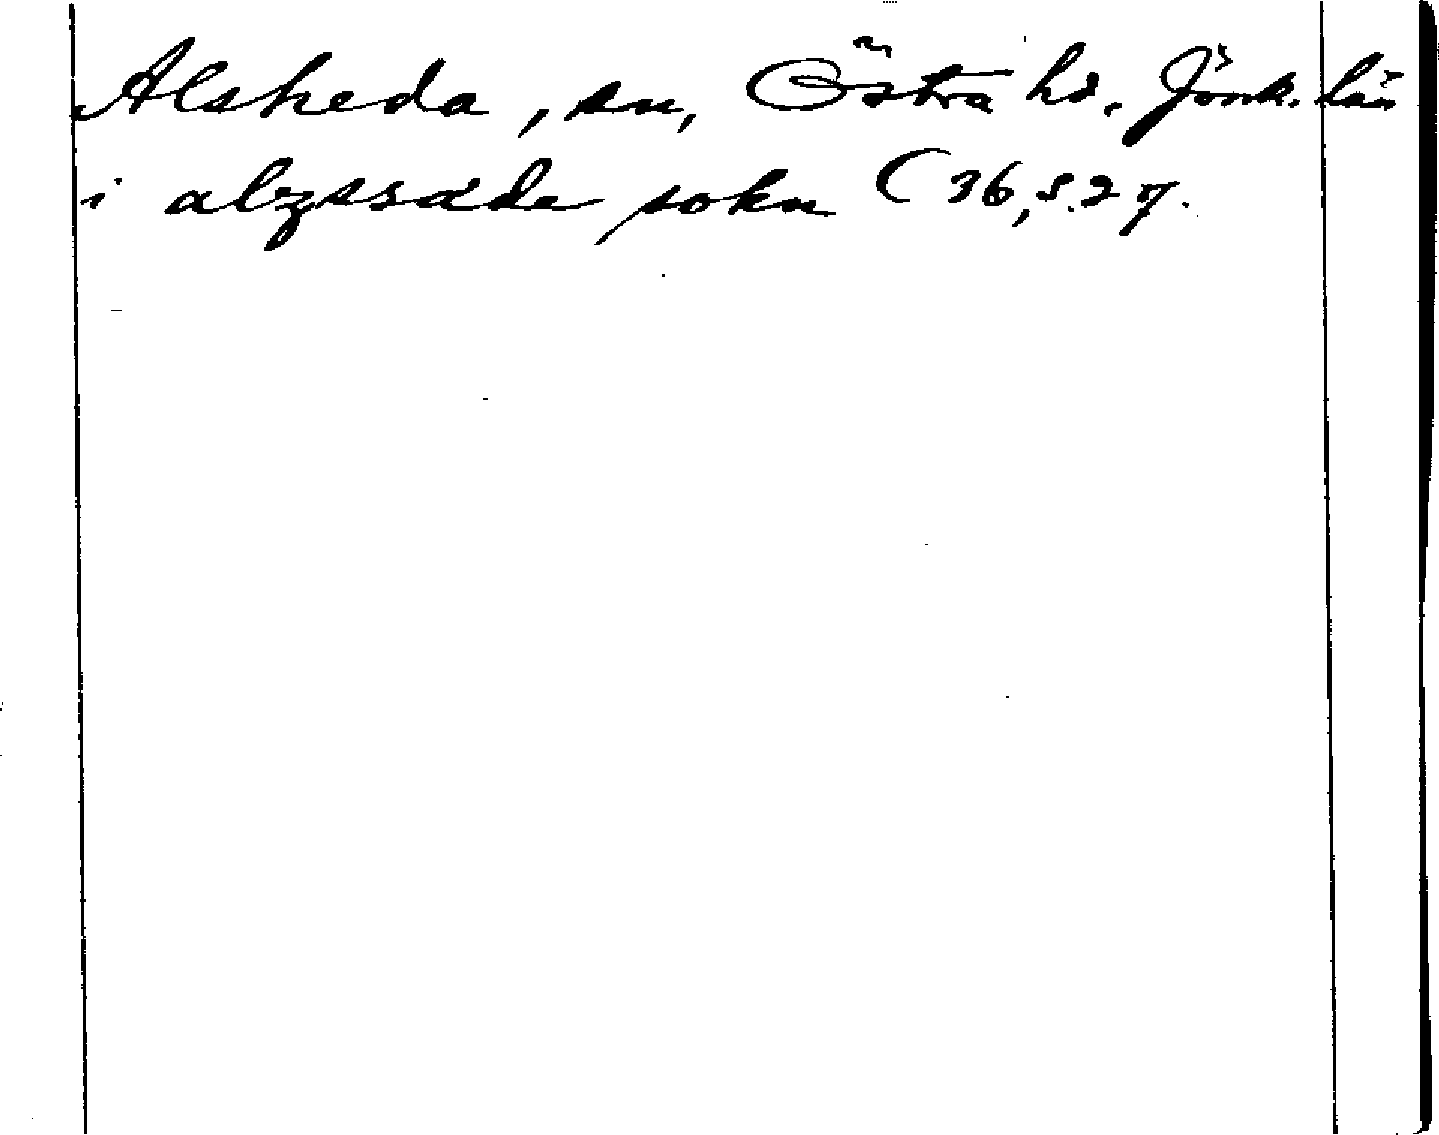 Alsheda, sn, Östra hd. Jönk. län
i alzssade sokn (36, s. 27.